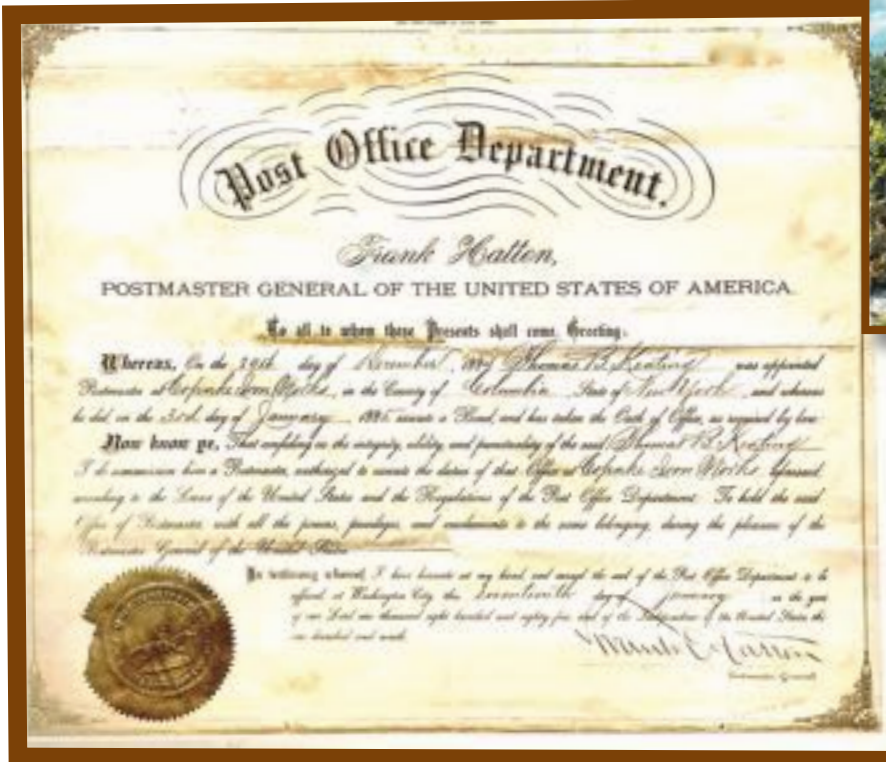 Post Office Department.
Frank Hatton,
POSTMASTER GENERAL OF THE UNITED STATES OF AMERICA.
To all to whom these Presents shall come, Greeting:
Whereas, On the day of November, Thomas B. Keating was appointed
Postmaster at Copake Iron Works, in the County of Columbia, State of New York, and whereas
he did on the 3rd day of January 1885 execute a Bond, and has taken the Oath of Office, as required by law
Now know ye, That confiding in the integrity, ability, and punctuality of the said Thomas B. Keating
I do commission him a Postmaster, authorized to execute the duties of that Office at Copake Iron Works aforesaid
according to the Laws of the United States and the Regulations of the Post Office Department: To hold the said
Office of Postmaster, with all the powers, privileges, and emoluments to the same belonging, during the pleasure of the
Postmaster General of the United States.
In testimony whereof, I have hereunto set my hand, and caused the seal of the Post Office Department to be
affixed, at Washington City, this day of January in the year
of our Lord one thousand eight hundred and eighty five and of the Independence of the United States the
one hundred and ninth.
Frank Hatton
Postmaster General.